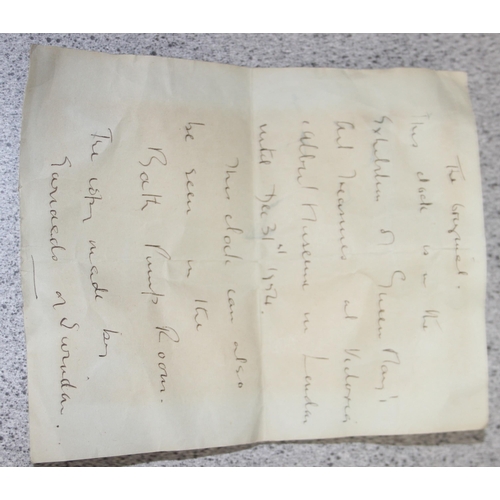 The original.
This clock is in the
Exhibition of Queen Mary's
Art Treasures at Victoria
& Albert Museum in London
until Dec 31st 1954.
This clock can also
be seen in the
Bath Pump Room.
The copy made by
of Swindon.